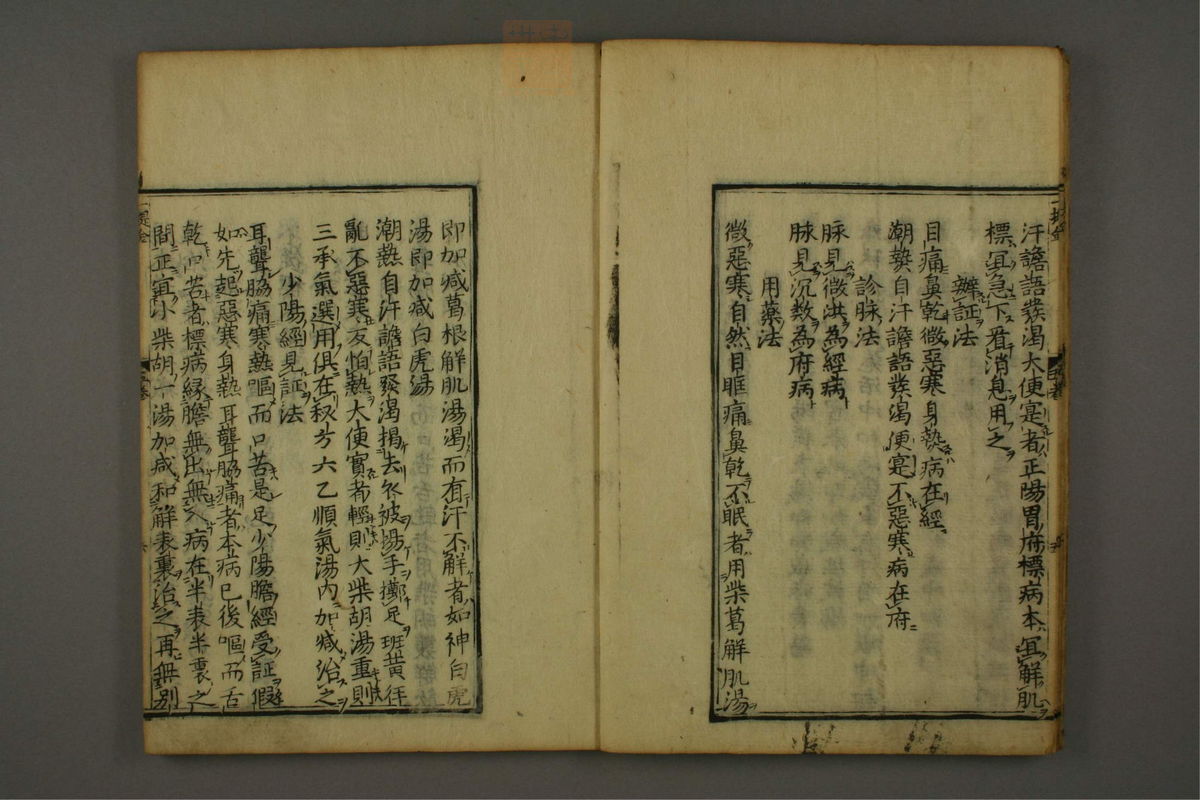 汗譫語發渴大便宲者正陽胃府標病本冝解肌
標冝急下看消息用之
辧証法
目痛鼻乾微惡寒身𤍠病在經
潮𤍠自汗譫語發渴便宲不惡寒病在府
診脉法
脉見微洪為經病
脉見沉数為府病
用藥法
微惡寒自然目眶痛鼻乾不眠者用柴葛解肌湯
即加减葛根解肌湯渴而有汗不解者如神白虎
湯即加减白虎湯
潮熱自汗譫語發渴揭去衣被揚手擲足班黄狂
亂不惡寒反怕熱大便實者輕則大柴胡湯重則
三承氣選用俱在秘方六乙順氣湯内加减治之
少陽經見証法
耳聾脇痛寒熱嘔而口苦是足少陽膽經受証假
如先起惡寒身熱耳聾脇痛者本病已後嘔而舌
乾口苦者標病緑膽無出無入病在半表半裏之
間正宜小柴胡一湯加减和解表裏治之再無别